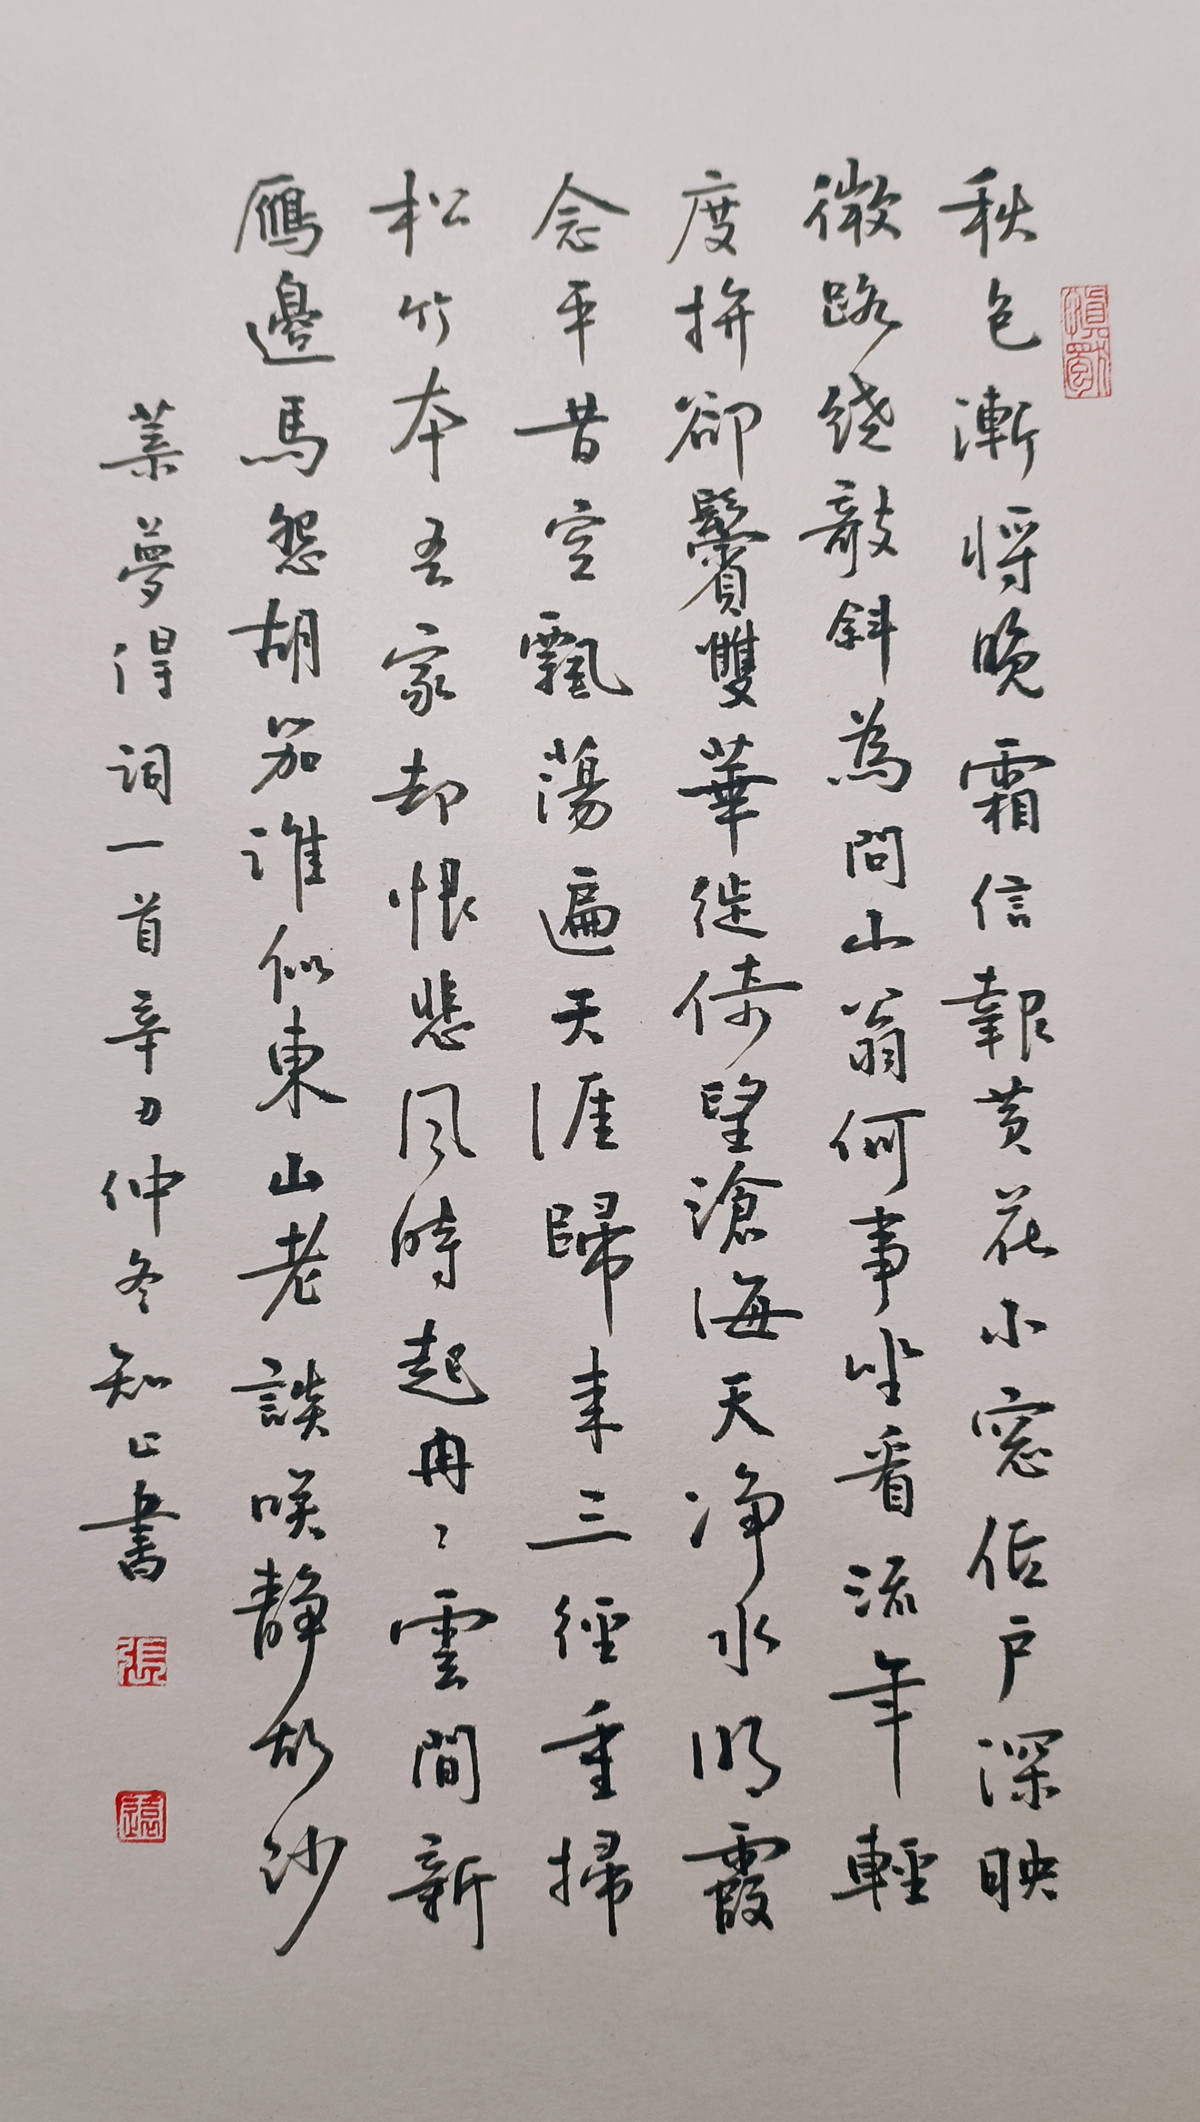 秋色漸将晚霜信報黄花小窓低户深映
微路绕敧斜為問山翁何事坐看流年輕
度拚卻鬢雙華徙倚望滄海天净水明霞
念平昔空飄蕩遍天涯歸来三徑重掃
松竹本吾家却恨悲风時起冉冉雲間新
鴈邊馬怨胡笳誰似東山老談咲静胡沙
葉夢得詞一首辛丑仲冬知止書
慎獨
張